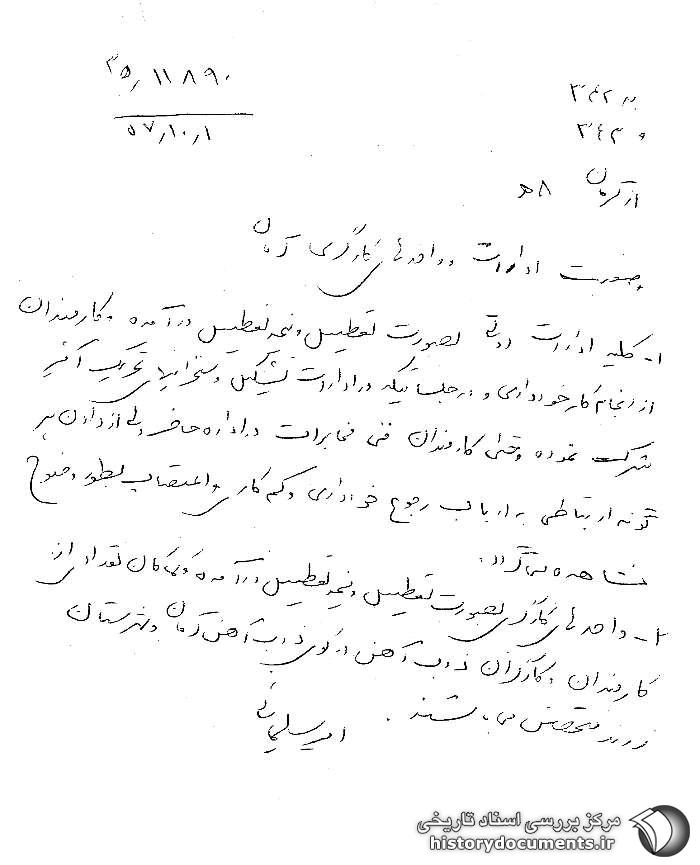 به ۳۴۲
و ۳۴۳
۳۵/۱۱۸۹۰
۵۷/۱۰/۱
از کرمان ۸ ه
وضعیت ادارات و واحدهای کارگری کرمان
۱- کلیه ادارات دولتی بصورت تعطیل و نیمه تعطیل درآمده و کارمندان
از انجام کار خودداری و در جلساتیکه در ادارات تشکیل و سخنرانیهای تحریک آمیز
شرکت نموده و حتی کارمندان فنی مخابرات در اداره حاضر ولی از دادن هر
گونه ارتباطی به ارباب رجوع خودداری و کم کاری و اعتصاب بطور وضوح
مشاهده میگردد.
۲- واحدهای کارگری بصورت تعطیل و نیمه تعطیل درآمده و کماکان تعدادی از
کارمندان و کارگران ذوب آهن در کوی ذوب آهن کرمان و شهرستان
زرند متحصن می باشند.
امیر سلیمانی
مرکز بررسی اسناد تاریخی
historydocuments.ir